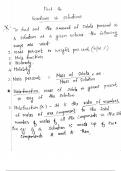 Part 2
in solutions
To find out the amount of solute present in
a solution at a given volume the following
ways are used:
1. mass percent or weight percent (w/w %)
2. Mole fraction
3. Molarity
4. Molality
1. Mass percent = Mass of solute × 100
Mass of solution
Mole fraction: mass of solute in present
in any of the solution
Mole fraction (x) :- It is the ratio of number
of moles of one component to the total
number of moles of all the components in the
If a solution is made up of two
components A and B then